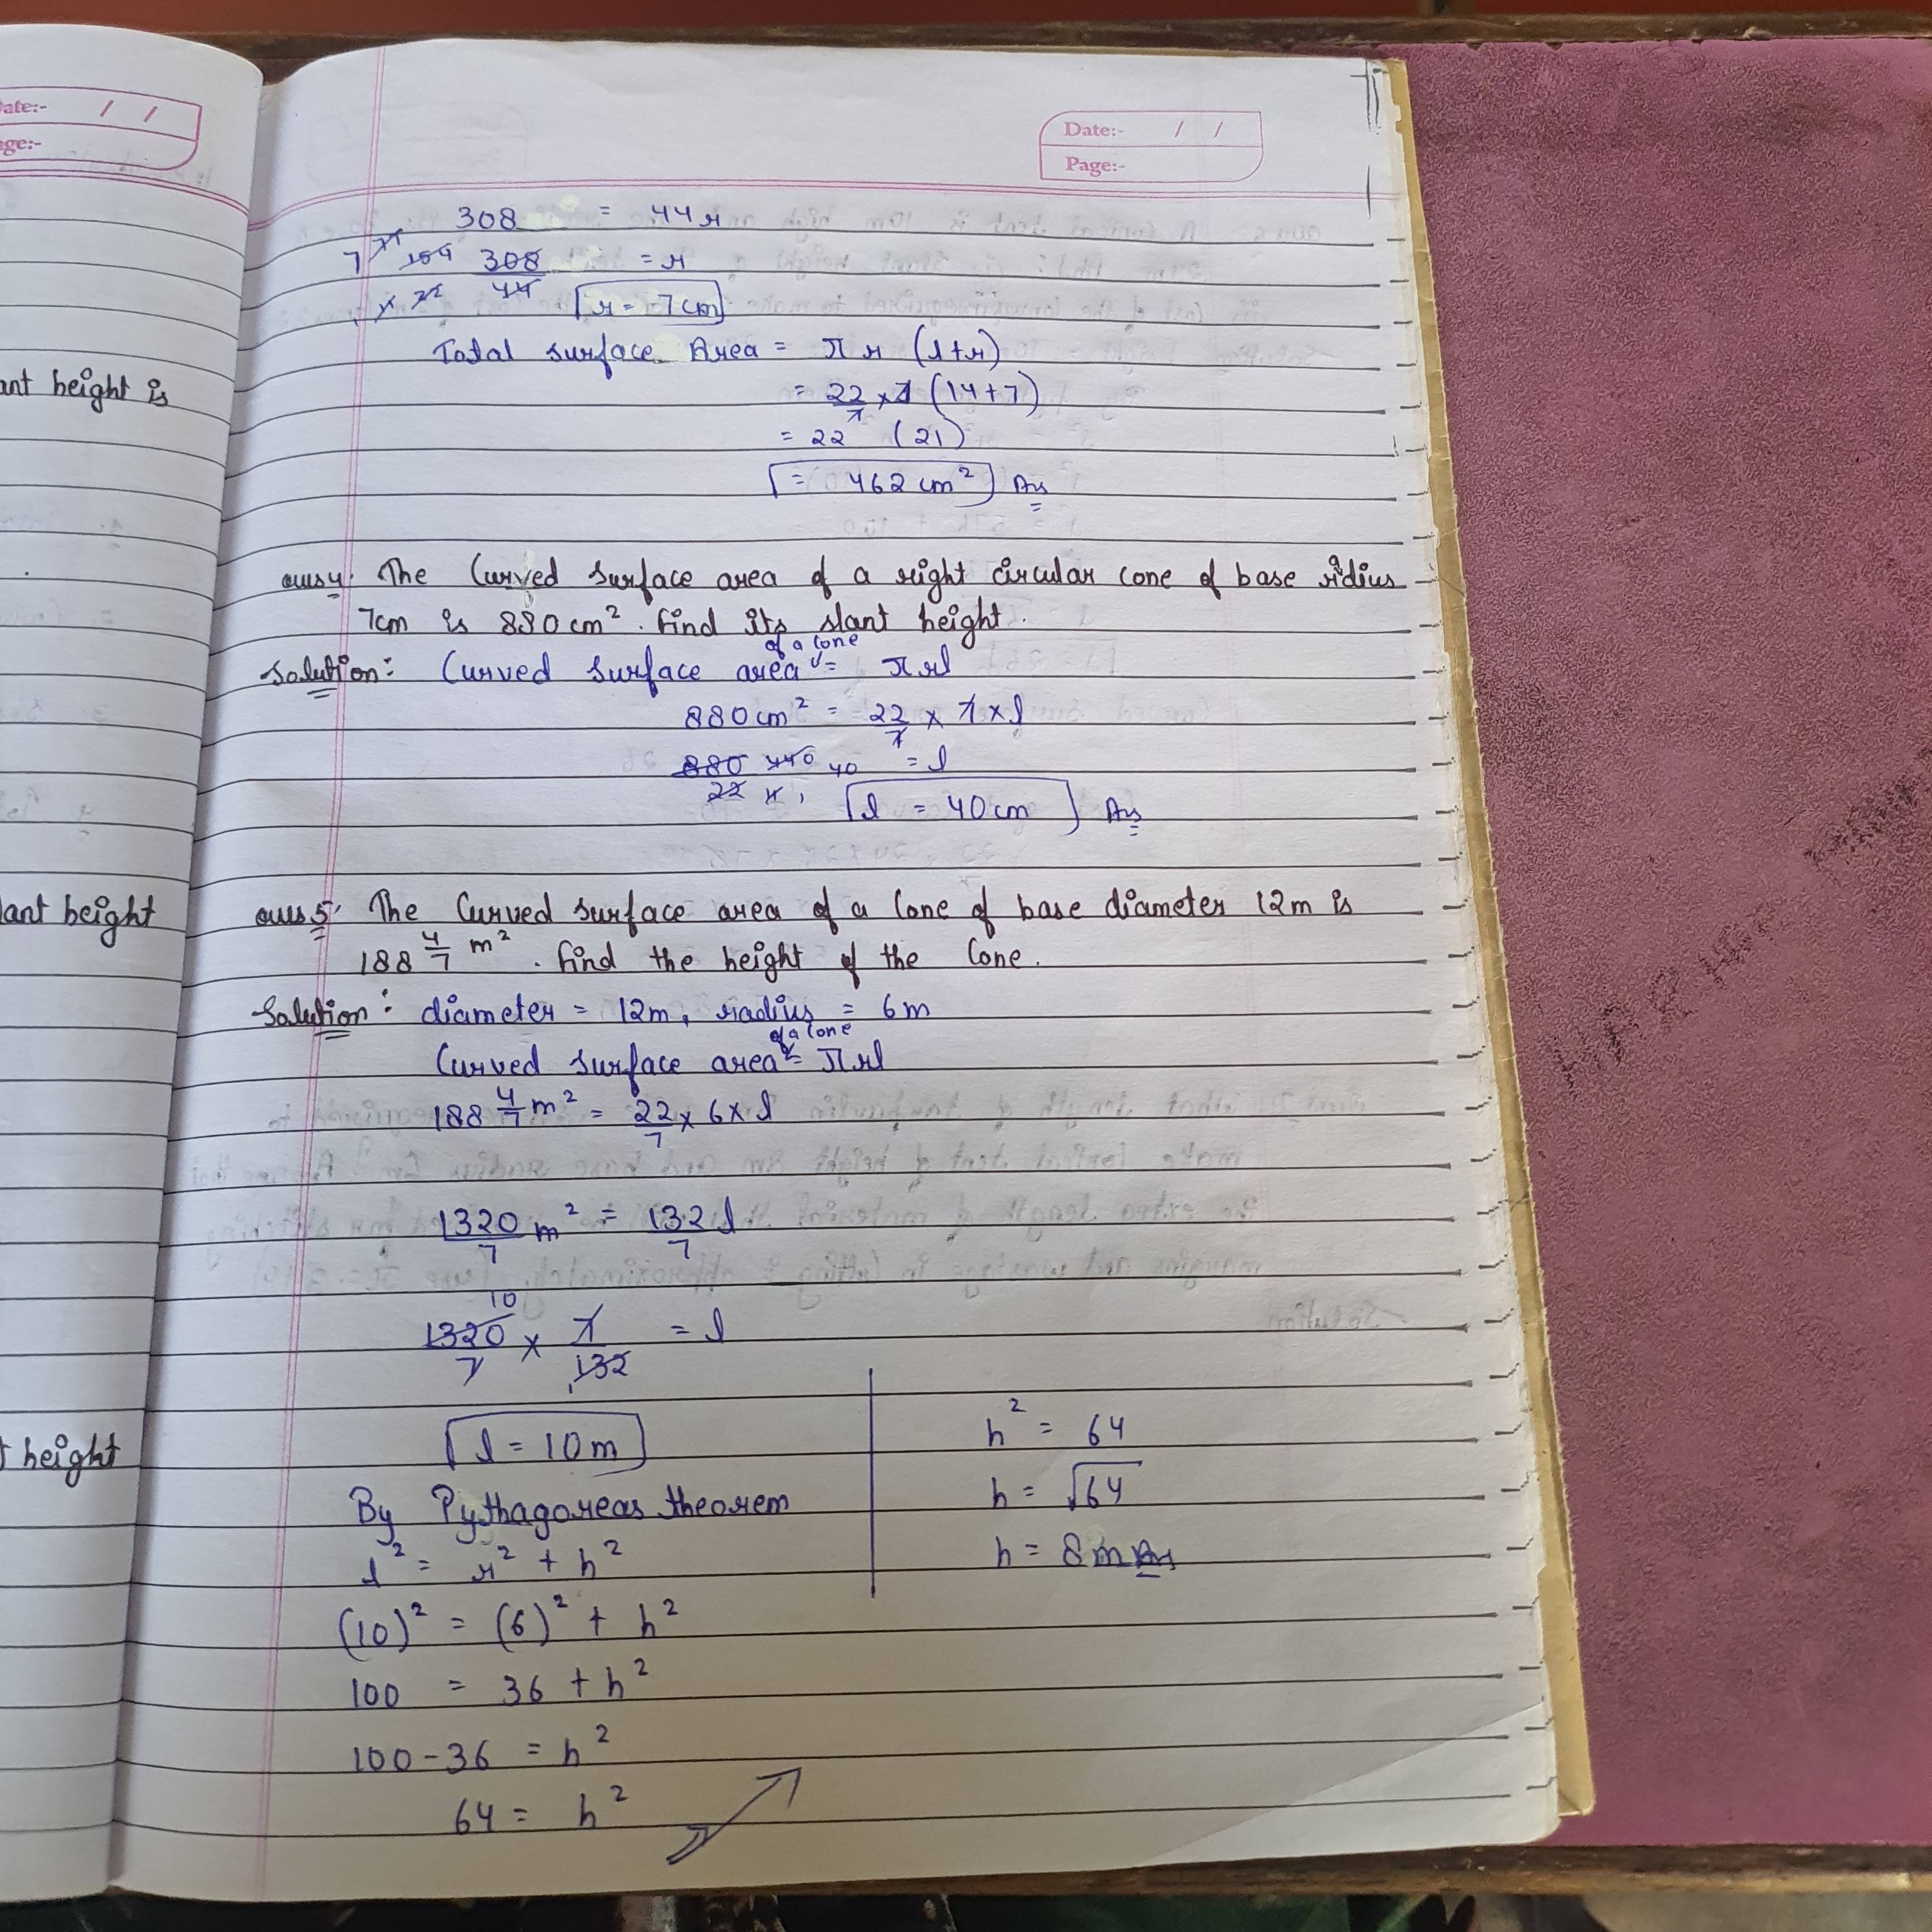 ate:- / /
ge:-
ant height is
lant height
t height
Date:- / /
Page:-
308 = 44r
7 21 154 308 = r
1 22 44 r = 7cm
Total surface Area = πr (l+r)
= 22/7 × 7 (14+7)
= 22 (21)
= 462 cm² Ans
Ques 4. The Curved surface area of a right circular cone of base ridius
7cm is 880 cm². Find its slant height.
Solution: Curved surface area of a cone = πrl
880 cm² = 22/7 × 7 × l
880/22 440/11 40/1 = l
l = 40cm Ans
Ques 5. The Curved surface area of a Cone of base diameter 12m is
188 4/7 m². Find the height of the Cone.
Solution: diameter = 12m, radius = 6m
Curved surface area of a Cone = πrl
188 4/7 m² = 22/7 × 6 × l
1320/7 m² = 132/7 l
10
1320/7 × 7/132 = l
1
l = 10m
By Pythagoreas theorem
l² = r² + h²
(10)² = (6)² + h²
100 = 36 + h²
100-36 = h²
64 = h²
h² = 64
h = √64
h = 8m Ans